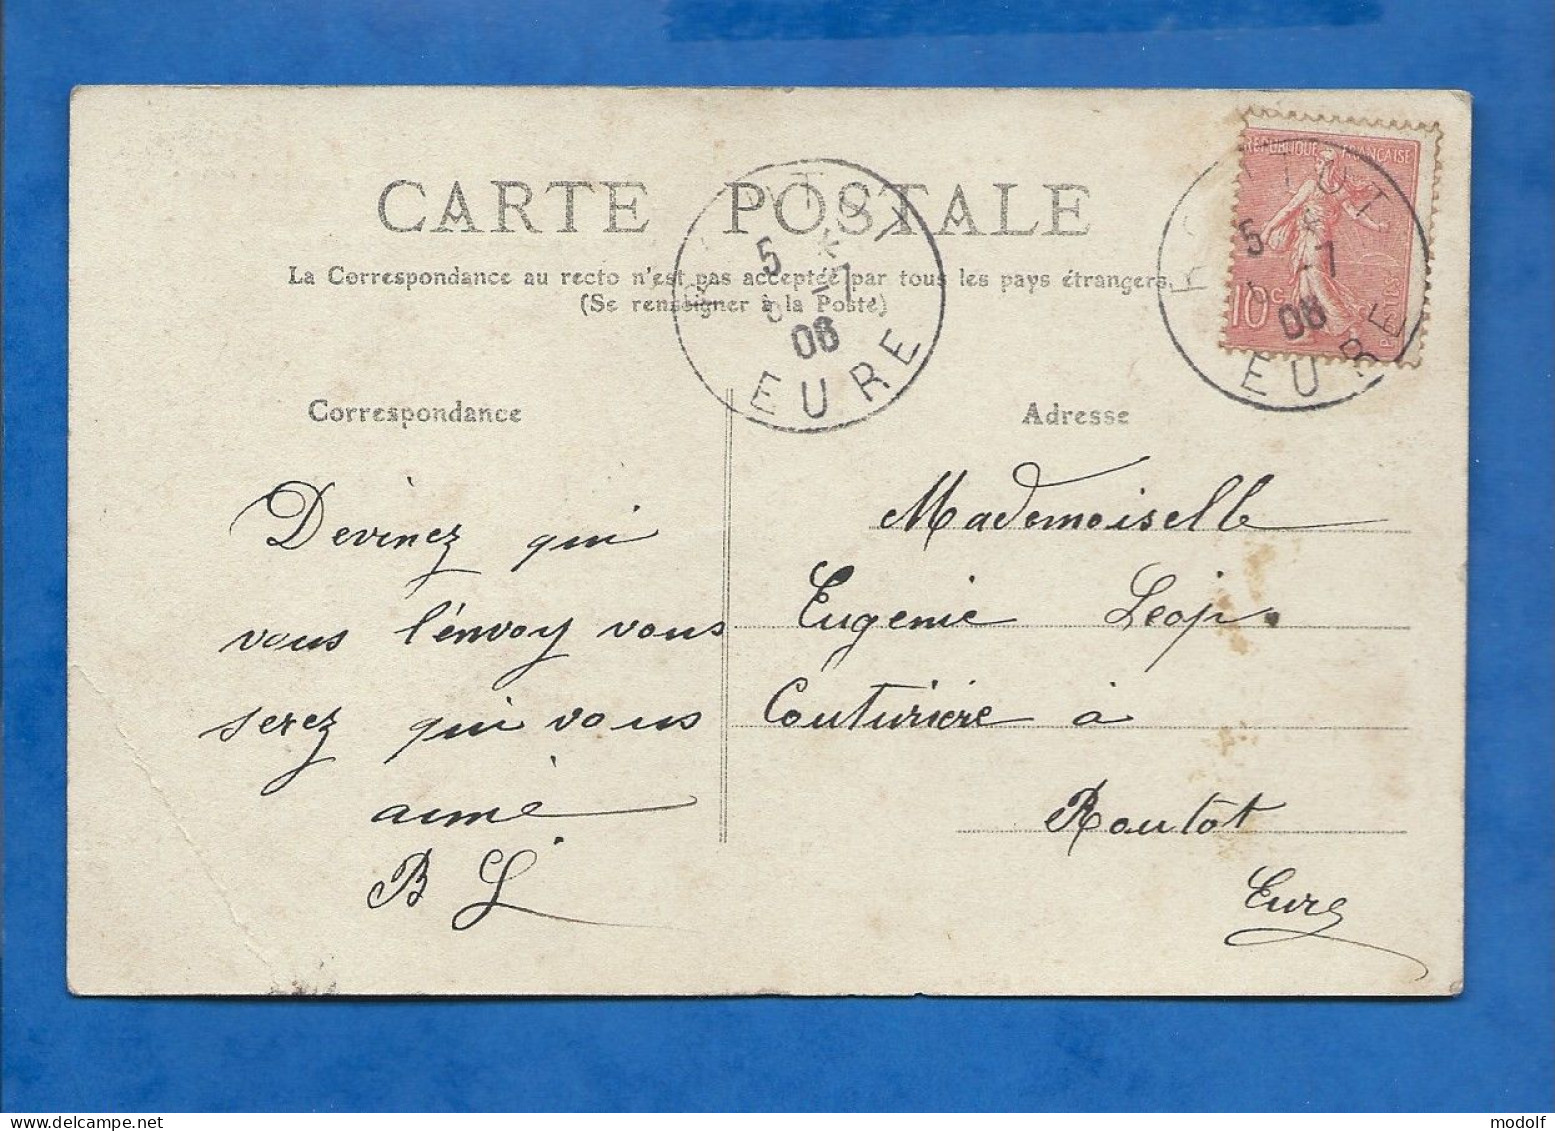 CARTE POSTALE
La Correspondance au recto n'est pas acceptée par tous les pays étrangers.
(Se renseigner à la Poste)
REPUBLIQUE FRANÇAISE
10 c
POSTES
ROUTOT
5 *
-7
08
EURE
5 *
-7
08
EURE
Correspondance
Devinez qui
vous l'envoy vous
serez qui vous
aime
B L
Adresse
Mademoiselle
Eugenie Leop.
Couturière à
Routot
Eure
modolf